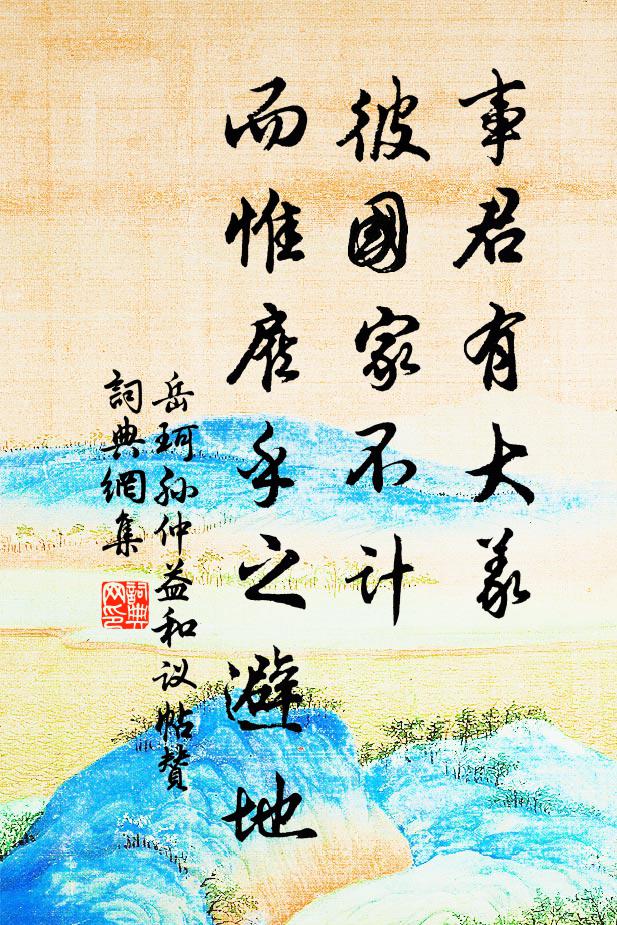 事君有大義
彼國家不计
而惟乎之避地
岳珂孙仲益和议帖贊
詞典網集
詞典网印